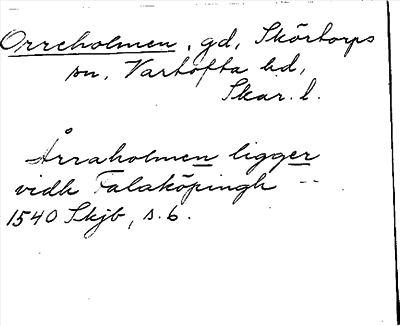 Orreholmen, gd, Skörtorps
sn, Vartofta hd,
Skar. l.
Årraholmen ligger
vidh Falaköpingh --
1540 Skjb, s. 6.